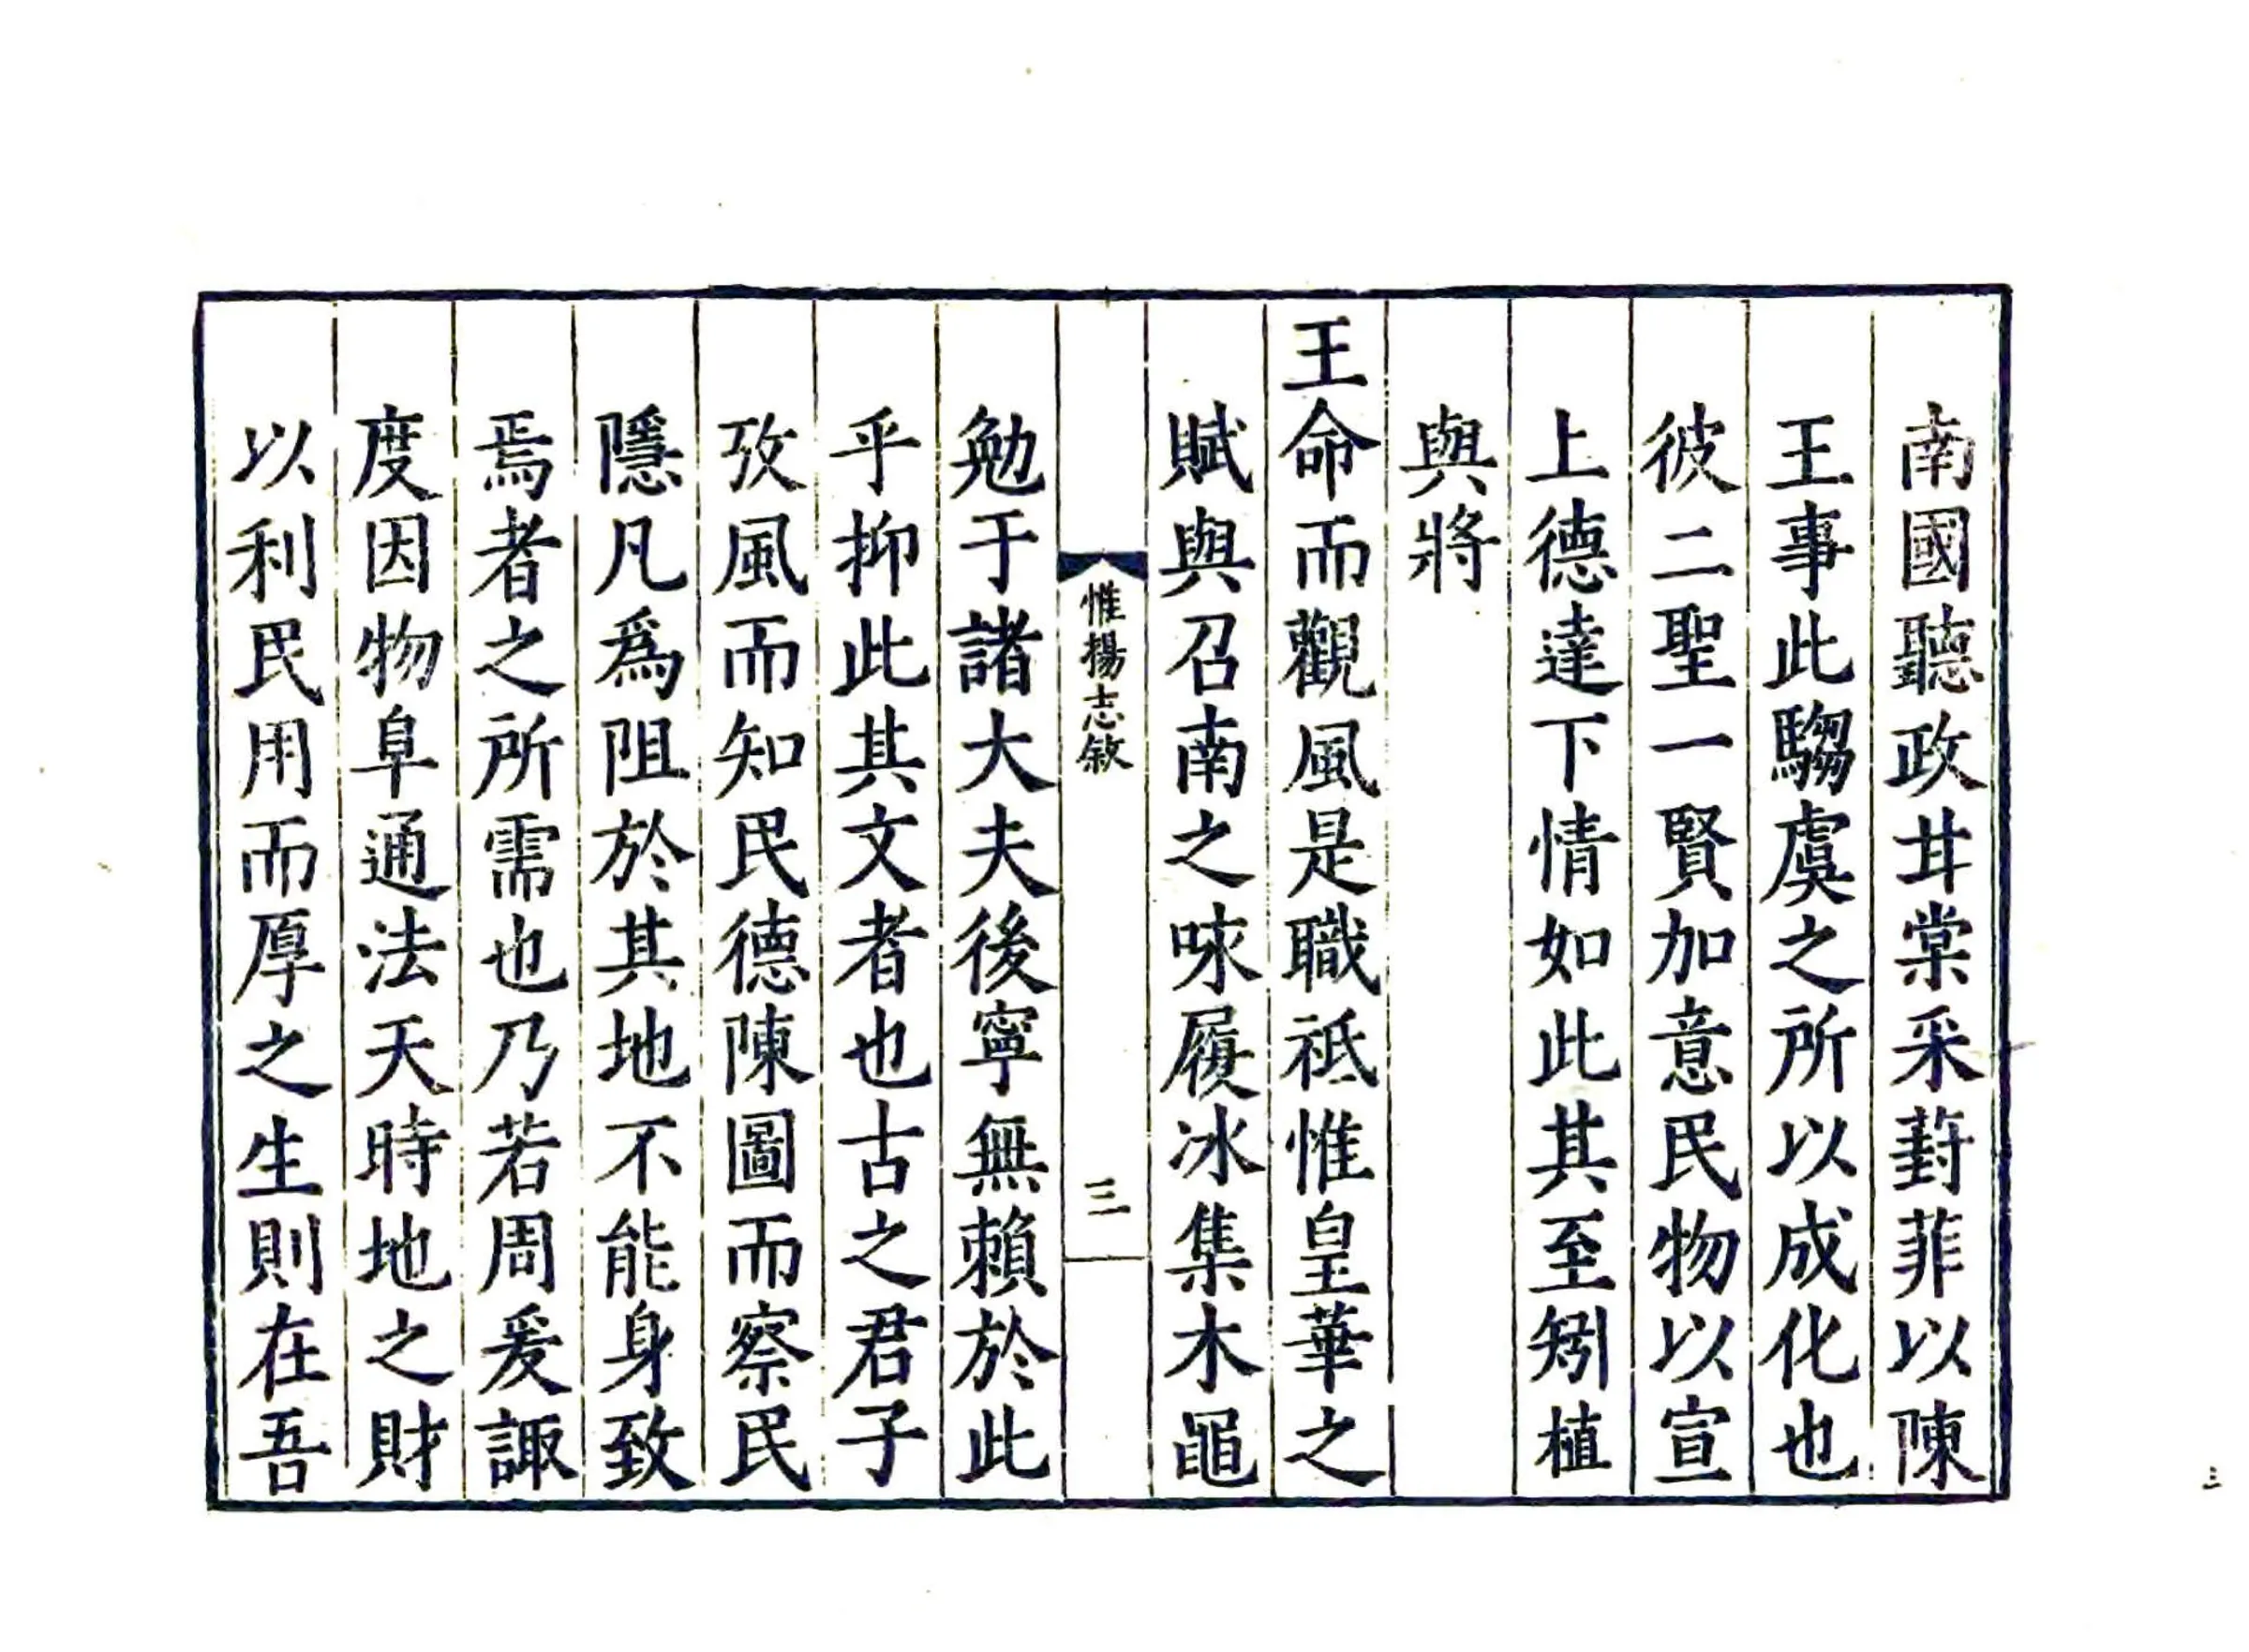 南國聽政甘棠采葑菲以陳
王事此騶虞之所以成化也
彼二聖一賢加意民物以宣
上德達下情如此其至矧植
與將
王命而觀風是職祗惟皇華之
賦與召南之咏履冰集木黽
惟揚志敘
三
勉于諸大夫後寧無賴於此
乎抑此其文者也古之君子
攷風而知民德陳圖而察民
隱凡爲阻於其地不能身致
焉者之所需也乃若周爰諏
度因物阜通法天時地之財
以利民用而厚之生則在吾
三